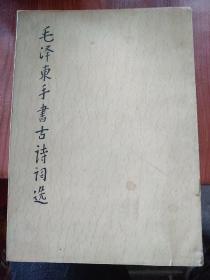 毛泽東手書古詩词选